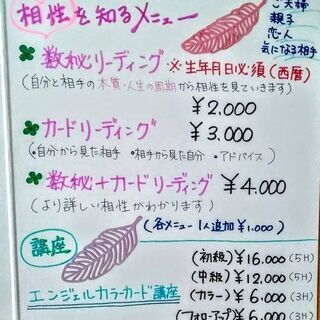 相性を知るメニュー
ご夫婦
親子
恋人
気になる相手
数秘リーディング ※生年月日必須(西暦)
(自分と相手の本質・人生の周期から相性を見ていきます)
¥2,000
カードリーディング ¥3,000
(•自分から見た相手 •相手から見た自分 •アドバイス)
数秘+カードリーディング ¥4,000
(より詳しい相性がわかります)
(各メニュー1人追加¥1,000)
講座
(初級)¥16,000(5H)
(中級)¥12,000(5H)
エンジェルカラーカード講座 (カラー)¥6,000(3H)
(フォローアップ)¥6,000(3H)